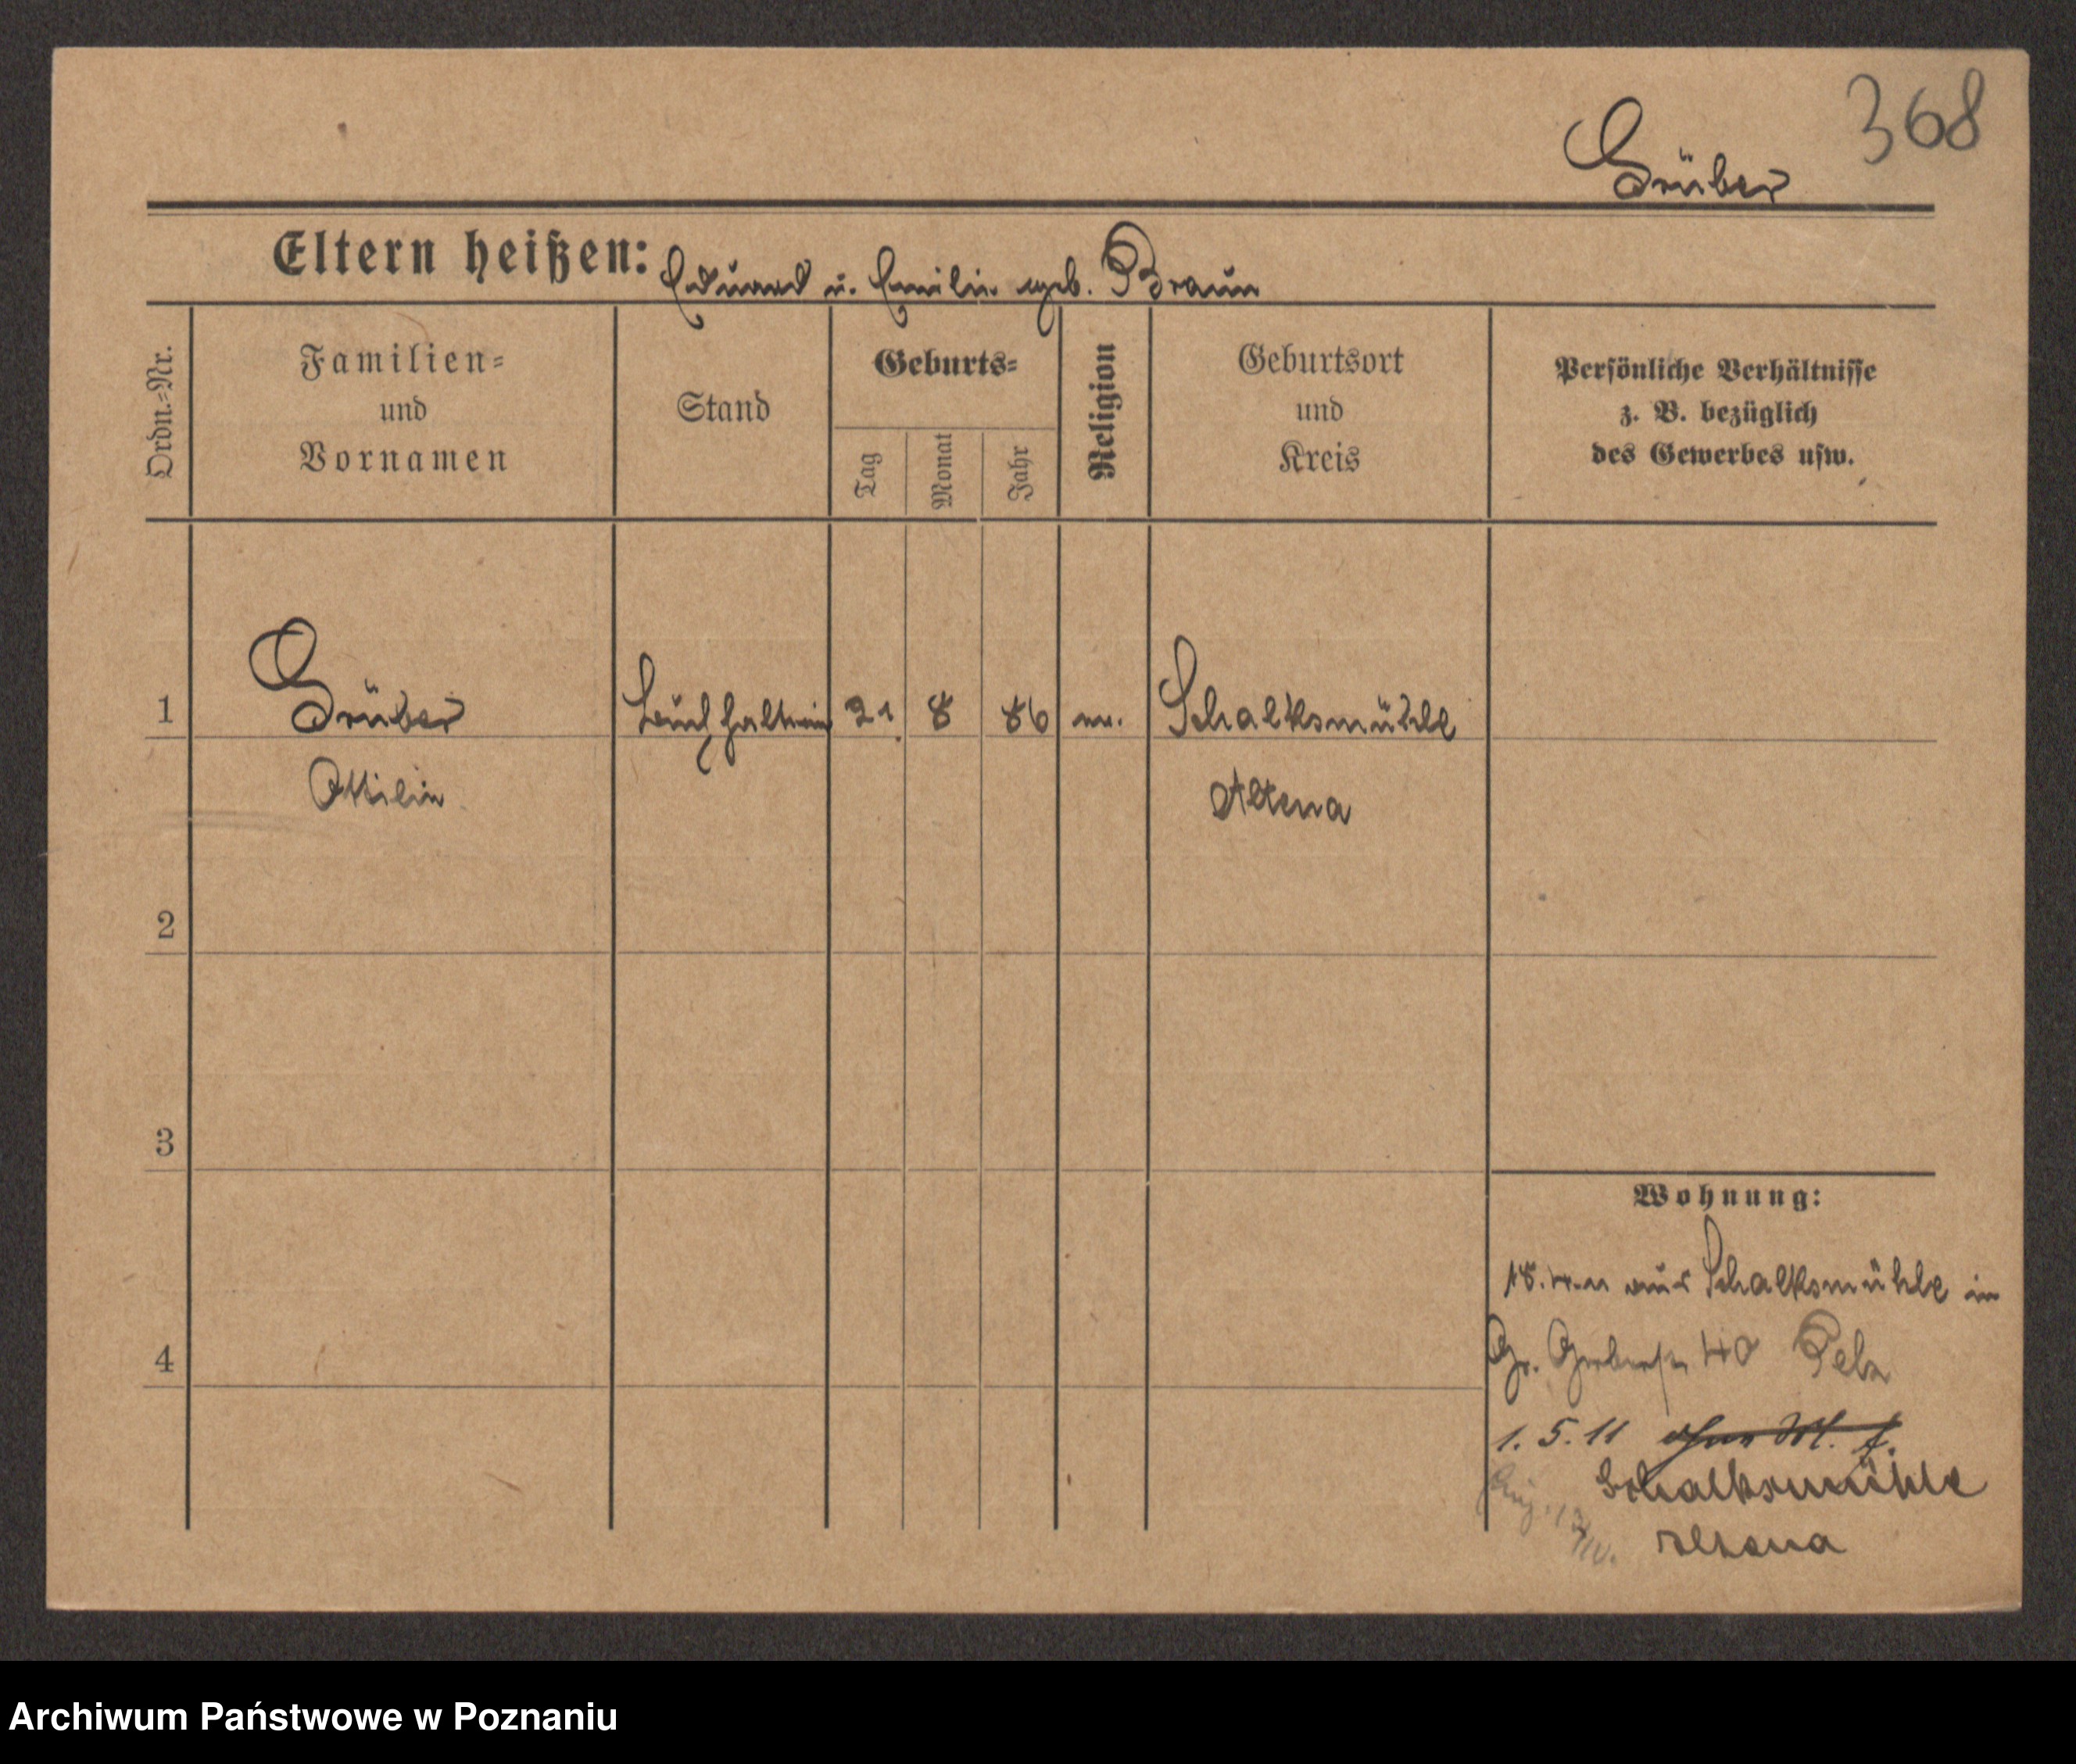 368
Grüber
Eltern heißen: Eduard u. Emilie geb. Braun
Ordn.-Nr.
Familien-
und
Vornamen
Stand
Geburts-
Tag
Monat
Jahr
Religion
Geburtsort
und
Kreis
Persönliche Verhältnisse
z. B. bezüglich
des Gewerbes usw.
1 Grüber Buchhalterin 21 8 86 ev. Schalksmühle
Ottilie Altena
2
3
4
Wohnung:
18.4.11 aus Schalksmühle in
Gr. Gerberstr. 40 Pelz
1. 5. 11
Schalksmühle
Altena